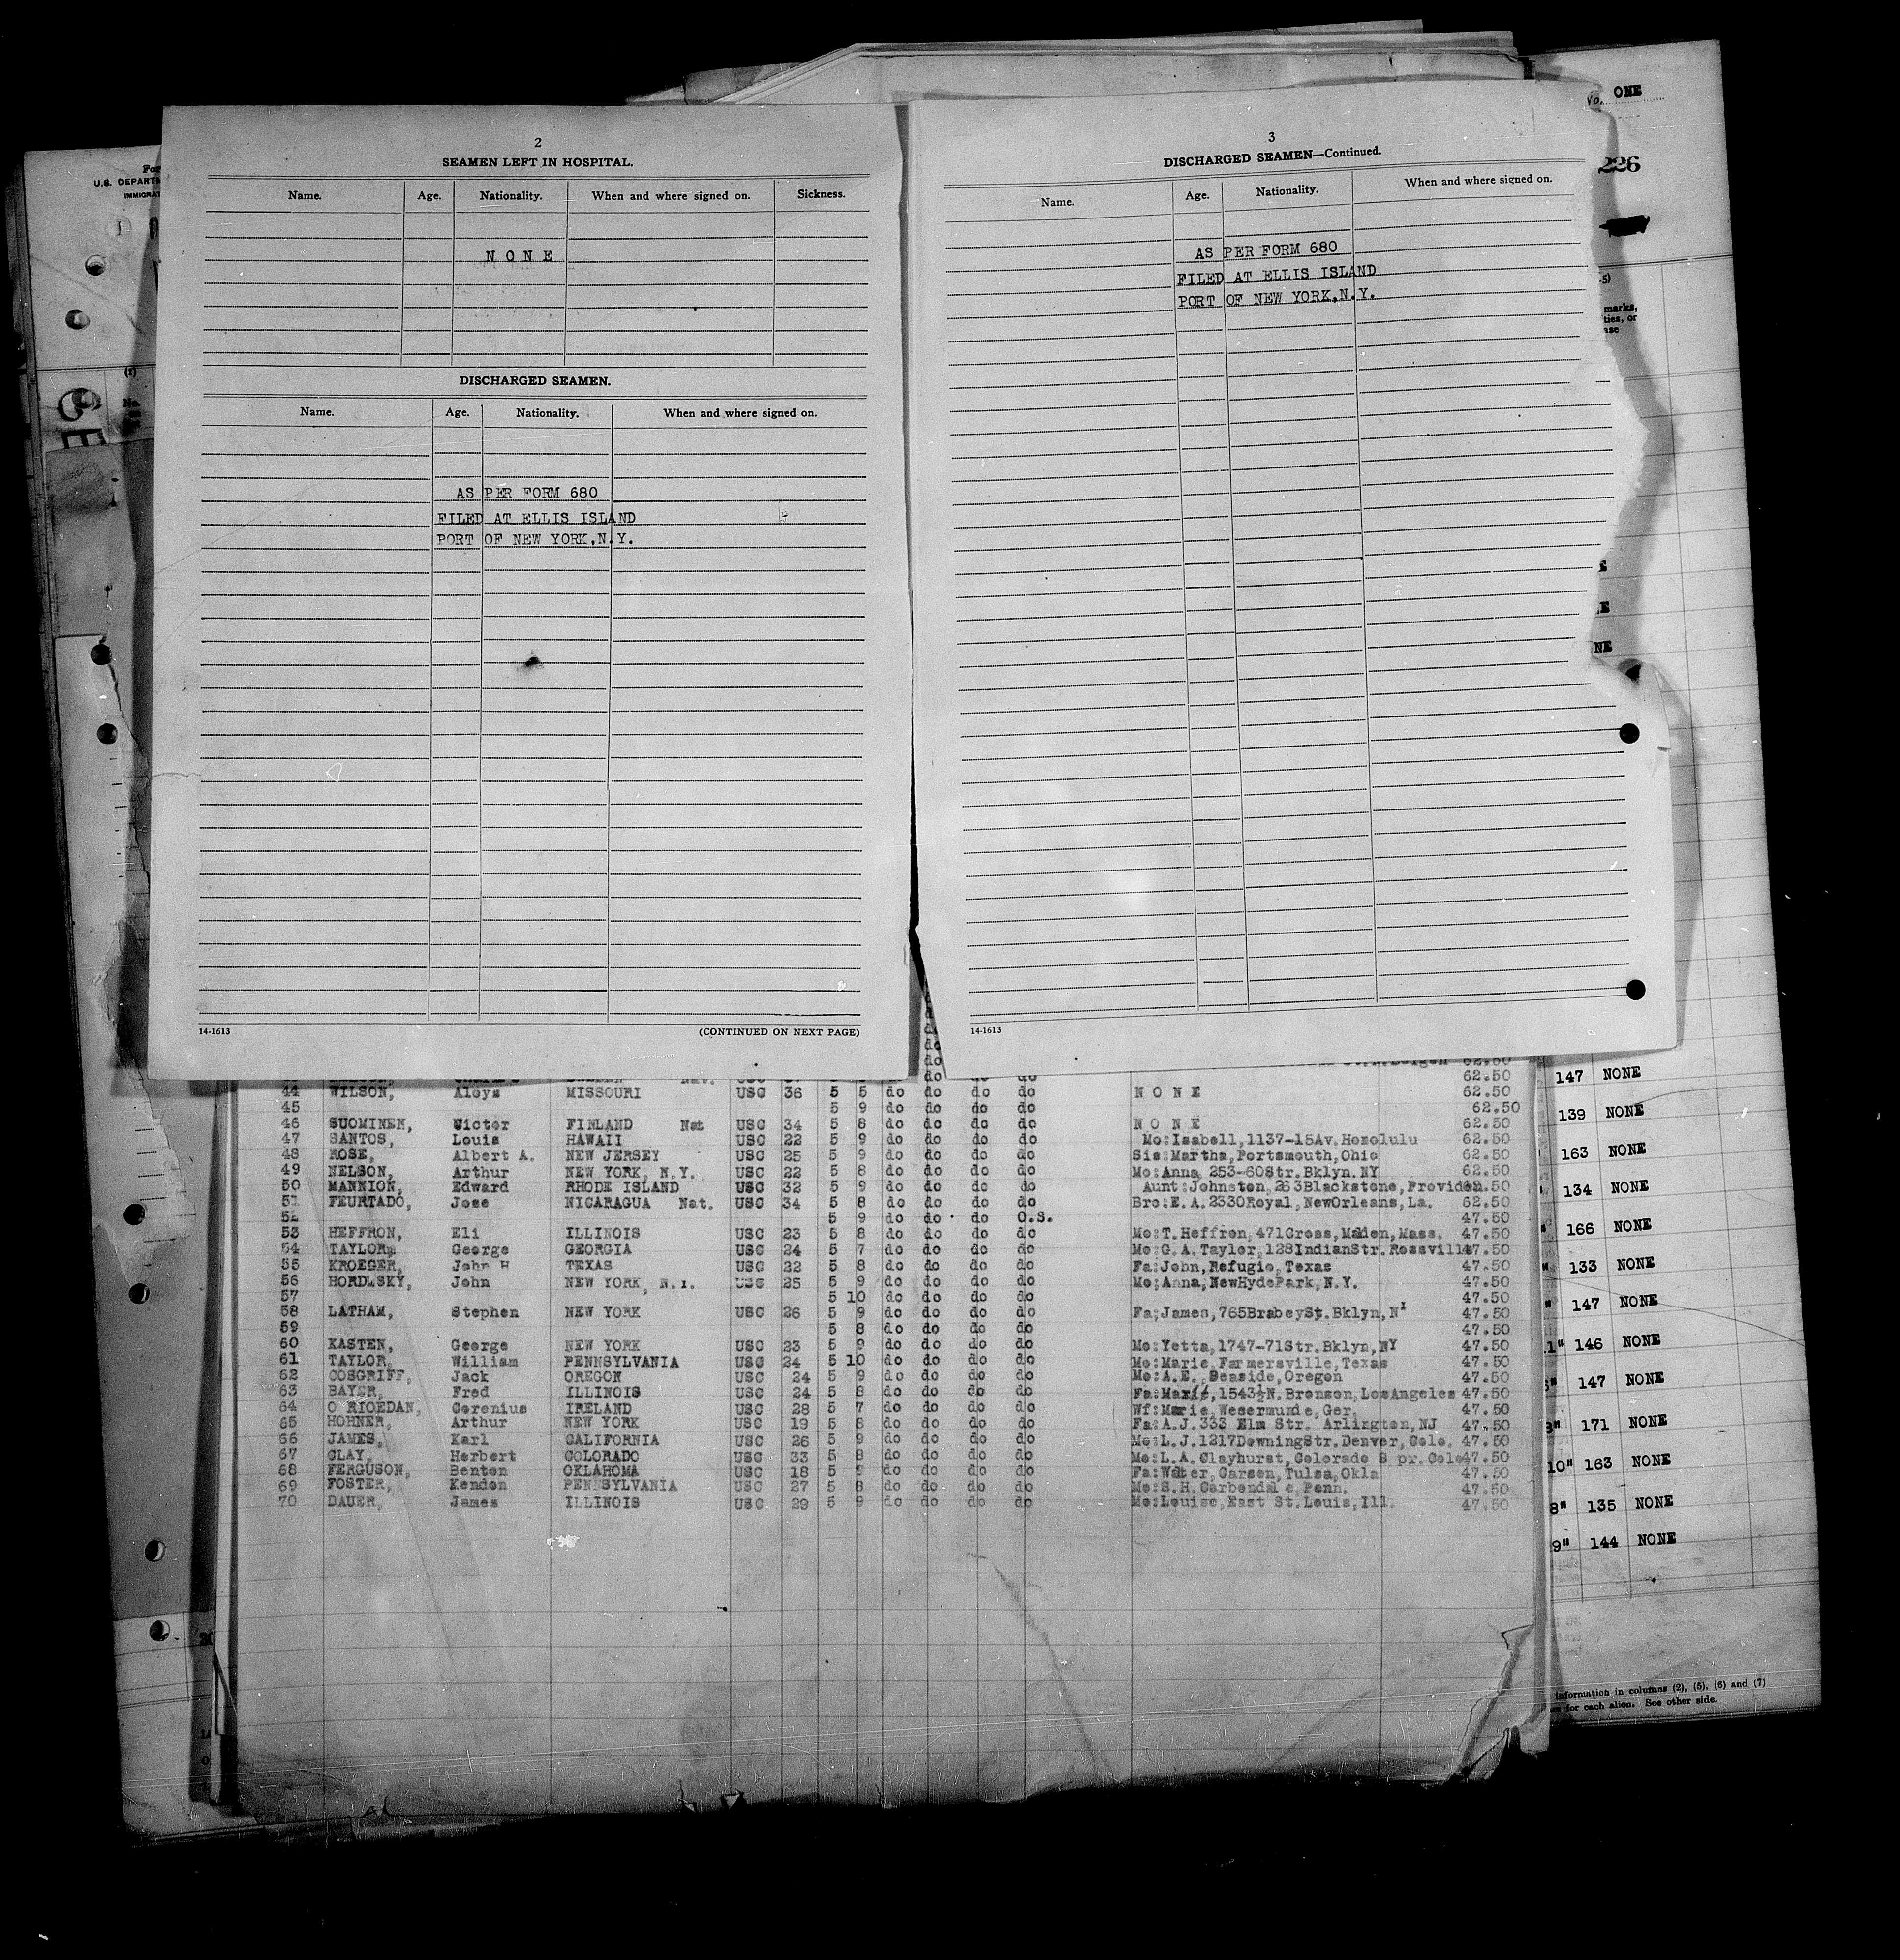 2
SEAMEN LEFT IN HOSPITAL.
Name. Age. Nationality. When and where signed on. Sickness.
N O N E
DISCHARGED SEAMEN.
Name. Age. Nationality. When and where signed on.
AS PER FORM 680
FILED AT ELLIS ISLAND
PORT OF NEW YORK,N.Y.
14-1613 (CONTINUED ON NEXT PAGE)
3
DISCHARGED SEAMEN—Continued.
Name. Age. Nationality. When and where signed on.
AS PER FORM 680
FILED AT ELLIS ISLAND
PORT OF NEW YORK,N.Y.
14-1613
No. ONE
226
U.S. DEPARTM
IMMIGRAT
(1)
marks,
ties, or
do
do
do do do 62.50
44 WILSON, Aloys MISSOURI USC 36 5 5 do do do do N O N E 62.50
45 5 9 do do do do 62.50
46 SUOMINEN, Victor FINLAND Nat USC 34 5 8 do do do do N O N E 62.50
47 SANTOS, Louis HAWAII USC 22 5 9 do do do do Mo:Isabell,1137-15Av.Honolulu 62.50
48 ROSE, Albert A. NEW JERSEY USC 25 5 9 do do do do Sis:Martha,Portsmouth,Ohio 62.50
49 NELSON, Arthur NEW YORK, N.Y. USC 22 5 8 do do do do Mo:Anna, 253-60Str.Bklyn.NY 62.50
50 MANNION, Edward RHODE ISLAND USC 32 5 9 do do do do Aunt:Johnston,263Blackstone,Providen.50
51 FEURTADO, Jose NICARAGUA Nat. USC 34 5 8 do do do do Bro:E.A.2330Royal,NewOrleans,La. 62.50
52 5 9 do do do O.S. 47.50
53 HEFFRON, Eli ILLINOIS USC 23 5 8 do do do do Mo:T.Heffron,471Cross,Malden,Mass. 47.50
54 TAYLOR, George GEORGIA USC 24 5 7 do do do do Mo:G.A.Taylor,128IndianStr.Rossville47.50
55 KROEGER, John H TEXAS USC 22 5 8 do do do do Fa:John,Refugio,Texas 47.50
56 HORDLSKY, John NEW YORK, N.Y. USC 25 5 9 do do do do Mo:Anna,NewHydePark,N.Y. 47.50
57 5 10 do do do do 47.50
58 LATHAM, Stephen NEW YORK USC 26 5 9 do do do do Fa;James,765BrabeySt.Bklyn,NY 47.50
59 5 8 do do do do 47.50
60 KASTEN, George NEW YORK USC 23 5 9 do do do do Mo:Yetta,1747-71Str.Bklyn,NY 47.50
61 TAYLOR, William PENNSYLVANIA USC 24 5 10 do do do do Mo:Marie,Farmersville,Texas 47.50
62 COSGRIFF, Jack OREGON USC 24 5 9 do do do do Mo:A.E. Seaside,Oregon 47.50
63 BAYER, Fred ILLINOIS USC 24 5 8 do do do do Fa:Max,1543½N.Bronson,LosAngeles 47.50
64 O RIOEDAN, Corenius IRELAND USC 28 5 7 do do do do Wf:Marie,Wesermunde,Ger. 47.50
65 HOHNER, Arthur NEW YORK USC 19 5 8 do do do do Fa:A.J.333 Elm Str. Arlington,NJ 47.50
66 JAMES, Karl CALIFORNIA USC 26 5 9 do do do do Mo:L.J.1217DowningStr.Denver,Colo. 47.50
67 CLAY, Herbert COLORADO USC 33 5 8 do do do do Mo:L.A.Clayhurst,Colorado S pr.Colo47.50
68 FERGUSON, Benton OKLAHOMA USC 18 5 9 do do do do Fa:Walter, Carsen,Tulsa,Okla 47.50
69 FOSTER, Kendon PENNSYLVANIA USC 27 5 8 do do do do Mo:S.H.Carbondale,Penn. 47.50
70 DAUER, James ILLINOIS USC 29 5 9 do do do do Mo:Louise,East St.Louis,Ill. 47.50
147 NONE
139 NONE
163 NONE
134 NONE
166 NONE
133 NONE
147 NONE
146 NONE
147 NONE
171 NONE
10" 163 NONE
8" 135 NONE
9" 144 NONE
information in columns (2), (5), (6) and (7)
for each alien. See other side.